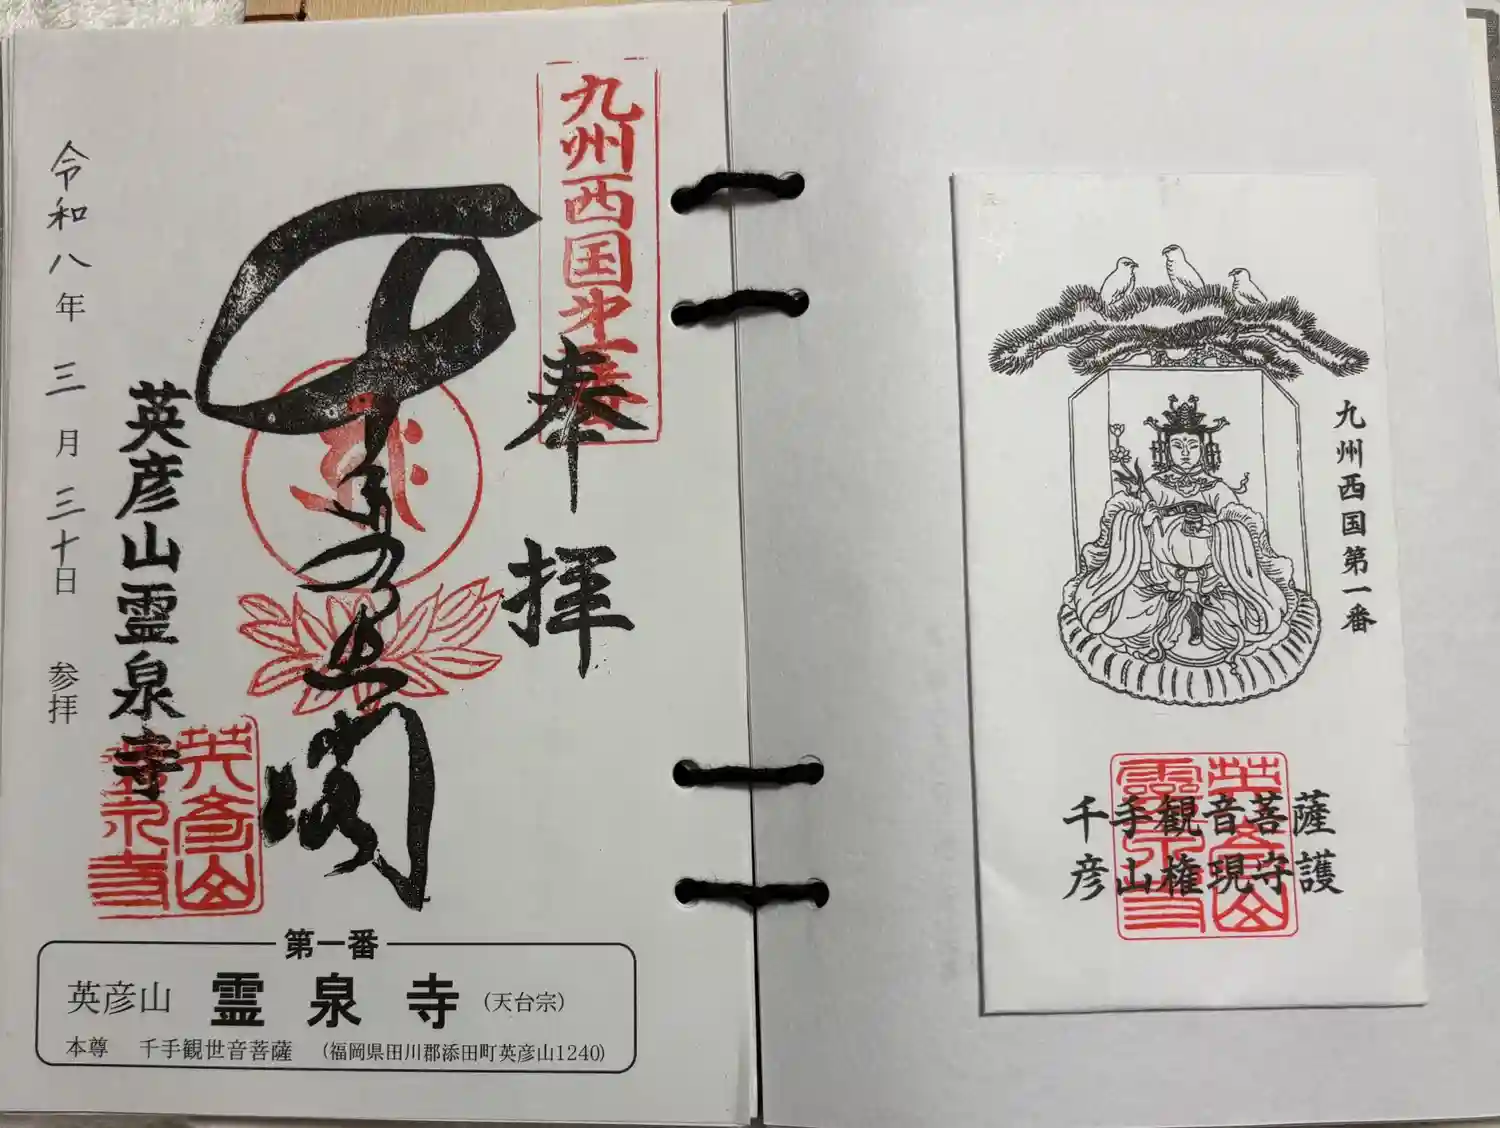 九州西国第一番
奉拝
千手大悲閣
英彦山霊泉寺
英彦山
霊泉寺
令和八年三月三十日 参拝
第一番
英彦山 霊泉寺 (天台宗)
本尊 千手観世音菩薩 (福岡県田川郡添田町英彦山1240)
九州西国第一番
千手観音菩薩
彦山権現守護
英彦山
靈泉寺